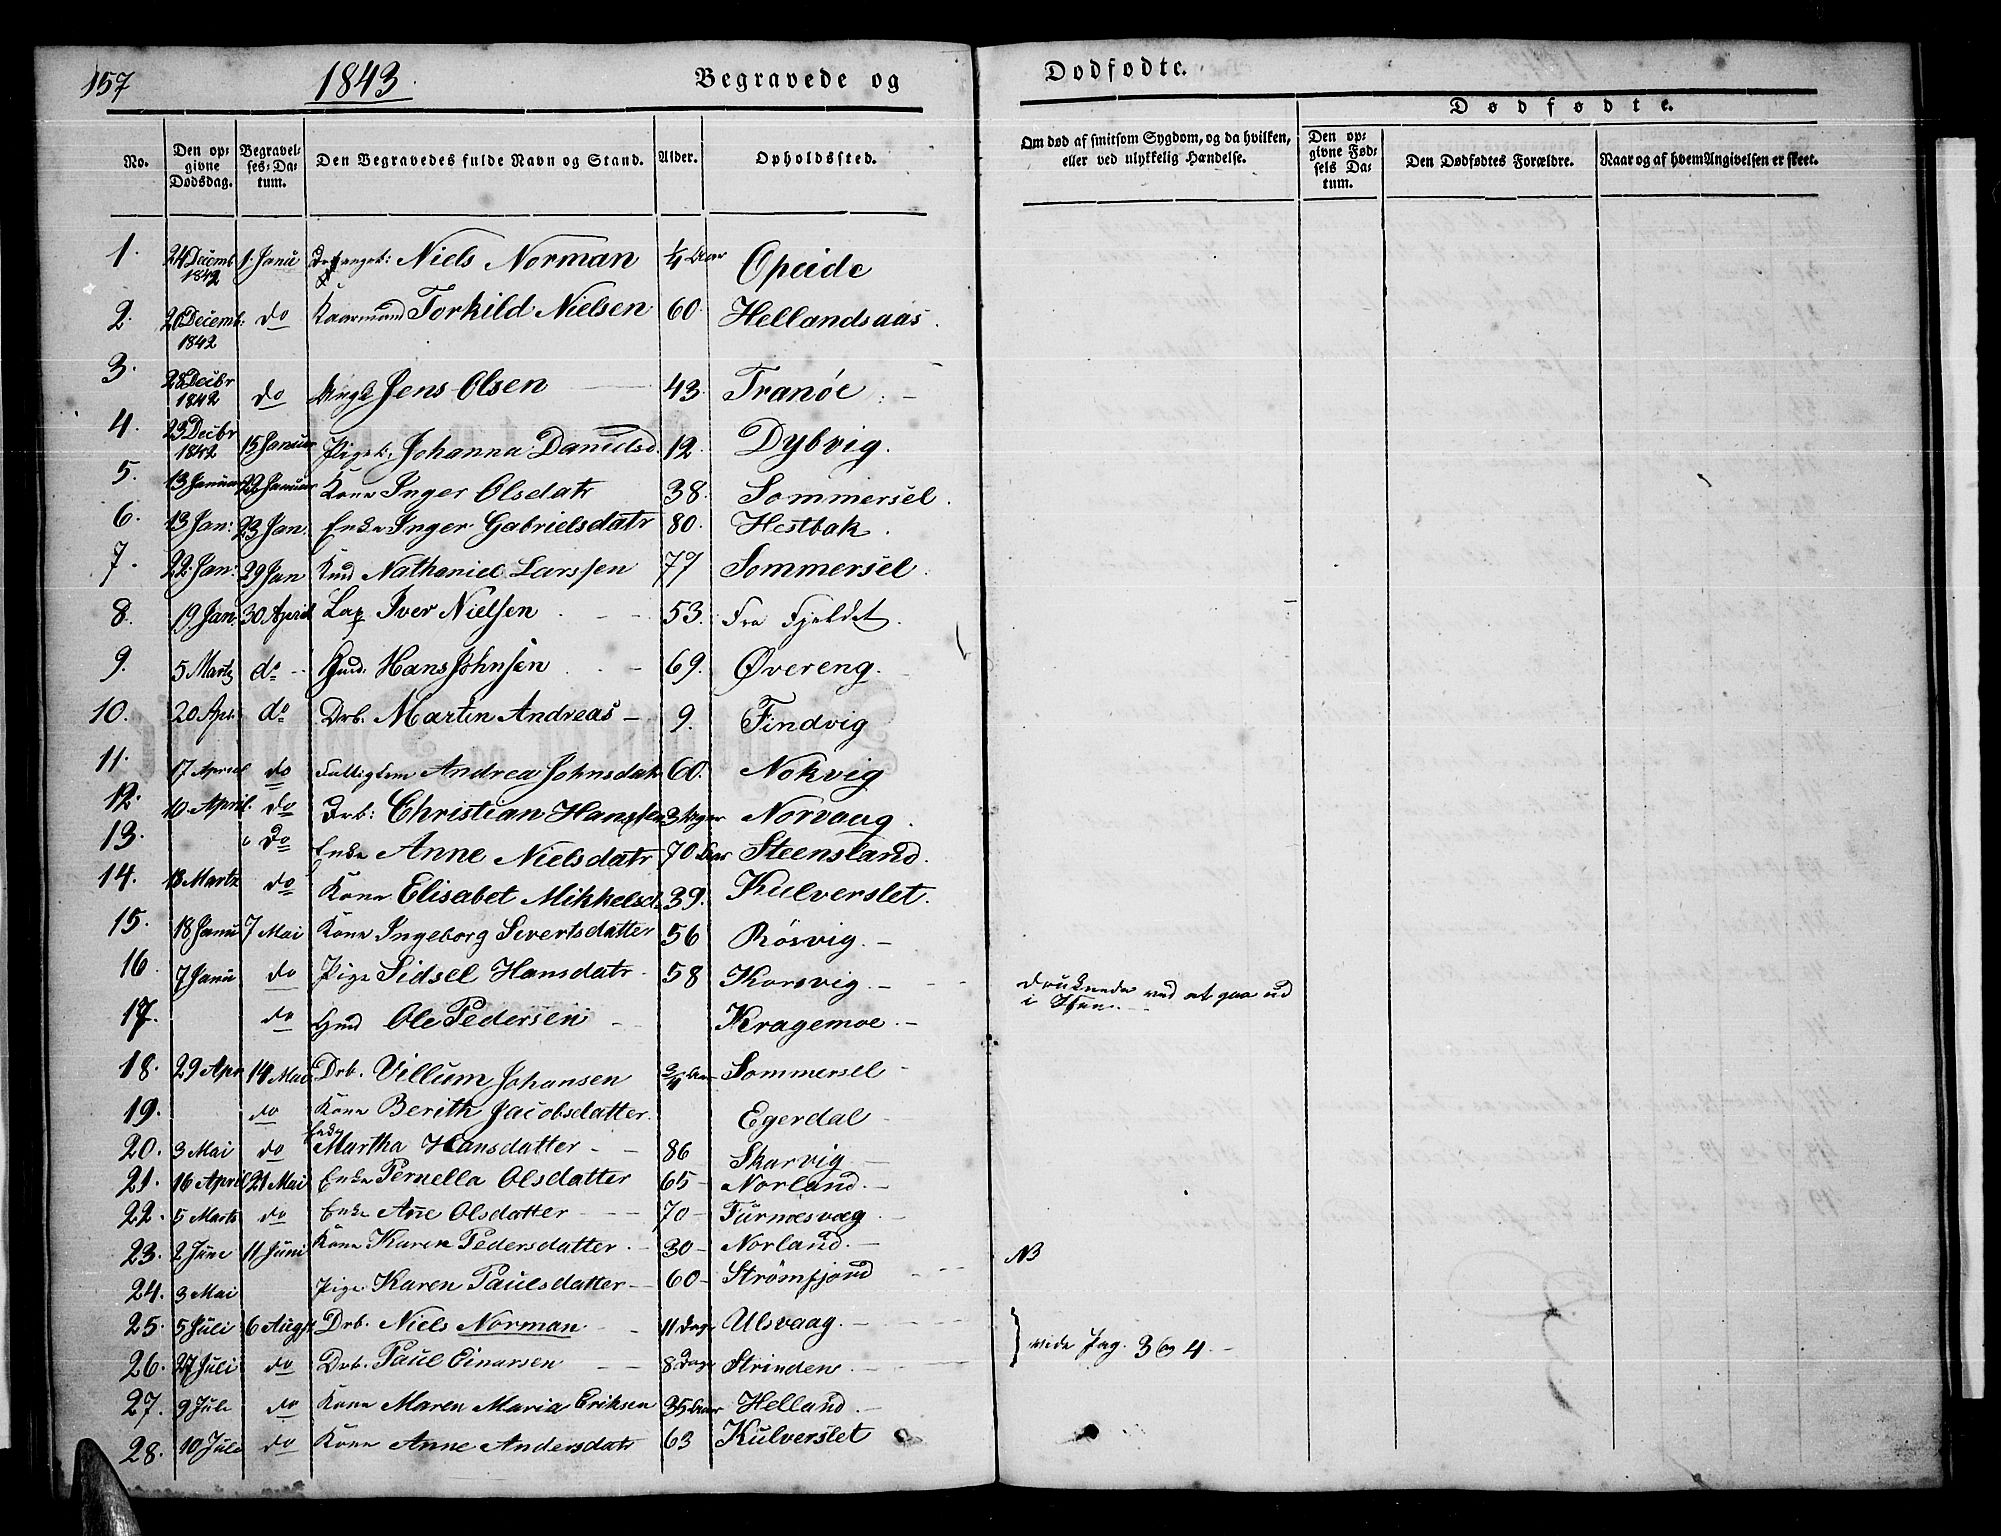 157 1843. Begravede og Dødfødte.
Dødfødte.
No. Den opgivne Dødsdag. Begravelses-Datum. Den Begravedes fulde Navn og Stand. Alder. Opholdssted. Om død af smitsom Sygdom, og da hvilken, eller ved ulykkelig Hændelse. Den opgivne Fødsels Datum. Den Dødfødtes Forældre. Naar og af hvem Angivelsen er skeet.
1. 24 Decemb 1842 1. Janu Niels Norman 1/4 Aar Opeide
2. Decemb. 1842 do Kaarmand Torkild Nielsen 60. Hellandsaas.
3. 28 Decbr 1842 do Jens Olsen 43. Tranöe. -
4. 23 Decbr 1842 15 Januar Pigeb. Johanna Danielsd. 12. Dybvig.
5. 13 Januar 22 Januar Kone Inger Olsdatr 38. Sommersel.
6. 13 Jan: 23 Jan. Enke Inger Gabrielsdatr 80. Hestbak.
7. 22 Jan: 29 Jan Nathaniel Larssen 77 Sommersel.
8. 19 Jan. 30 April Lap Iver Nielsen - 53. Fra Fjeldet.
9. 5 Martz do - Hans Johnsen - 69. Øvereng.
10. 20 Apr. do Drb. Martin Andreas - 9. Findvig
11. 17 April do Fattiglem Andrea Johnsdatr 60. Nokvig
12. 10 April. do Drb: Christian Hanssen 3 Uger Norvaag.
13. do Enke Anne Nielsdatr 70 Aar Steensland.
14. 18 Martz do Kone Elisabet Mikkelsd. 39. Kulverslet.
15. 18 Janu 7 Mai Kone Ingeborg Sivertsdatter 56 Rösvig. -
16. 7 Janu do Pige Sidsel Hansdatr 58 Korsvig. - druknede ved at gaa ud
i Isen. -
17. do Hmd Ole Pedersen - Kragemoe. -
18. 29 Apr 14 Mai Drb. Villum Johansen 3/4 Aar Sommersel -
19. do Kone Berith Jacobsdatter. Egerdal -
20. 3 Mai do Enke Martha Hansdatter - 86 Skarvig -
21. 16 April 21 Mai Enke Pernella Olsdatter 65 - Norland. -
22. 5 Marts do Enke Ane Olsdatter - 70 - Turnæsvaag -
23. 2 June 11 Juni Kone Karen Pedersdatter. - 30 - Norland. - NB
24. 3 Mai Pige Karen Paulsdatter - 60 - Strömfjord
25. 5 Juli 6 Augst Drb. Niels Norman - 11 Dage Ulsvaag. -
26. 27 Juli do Drb. Paul Einarsen - 8 Dage Strinden. - vide Pag. 3 og 4. -
27. 9 Jule do Kone Maren Maria Eriksen 35 Aar Helland. -
28. 10 Jule do Kone Anne Andersdatr 63 Kulverslet